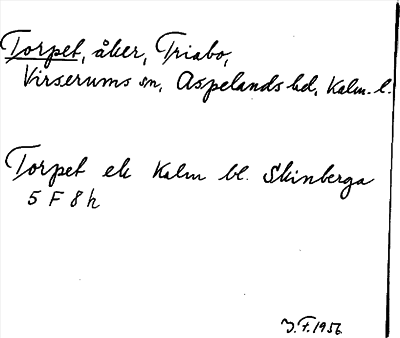 Torpet, åker, Triabo,
Virserums sn, Aspelands hd, Kalm. l.
Torpet ek Kalm bl. Skinberga
5 F 8 h
J.F. 1956